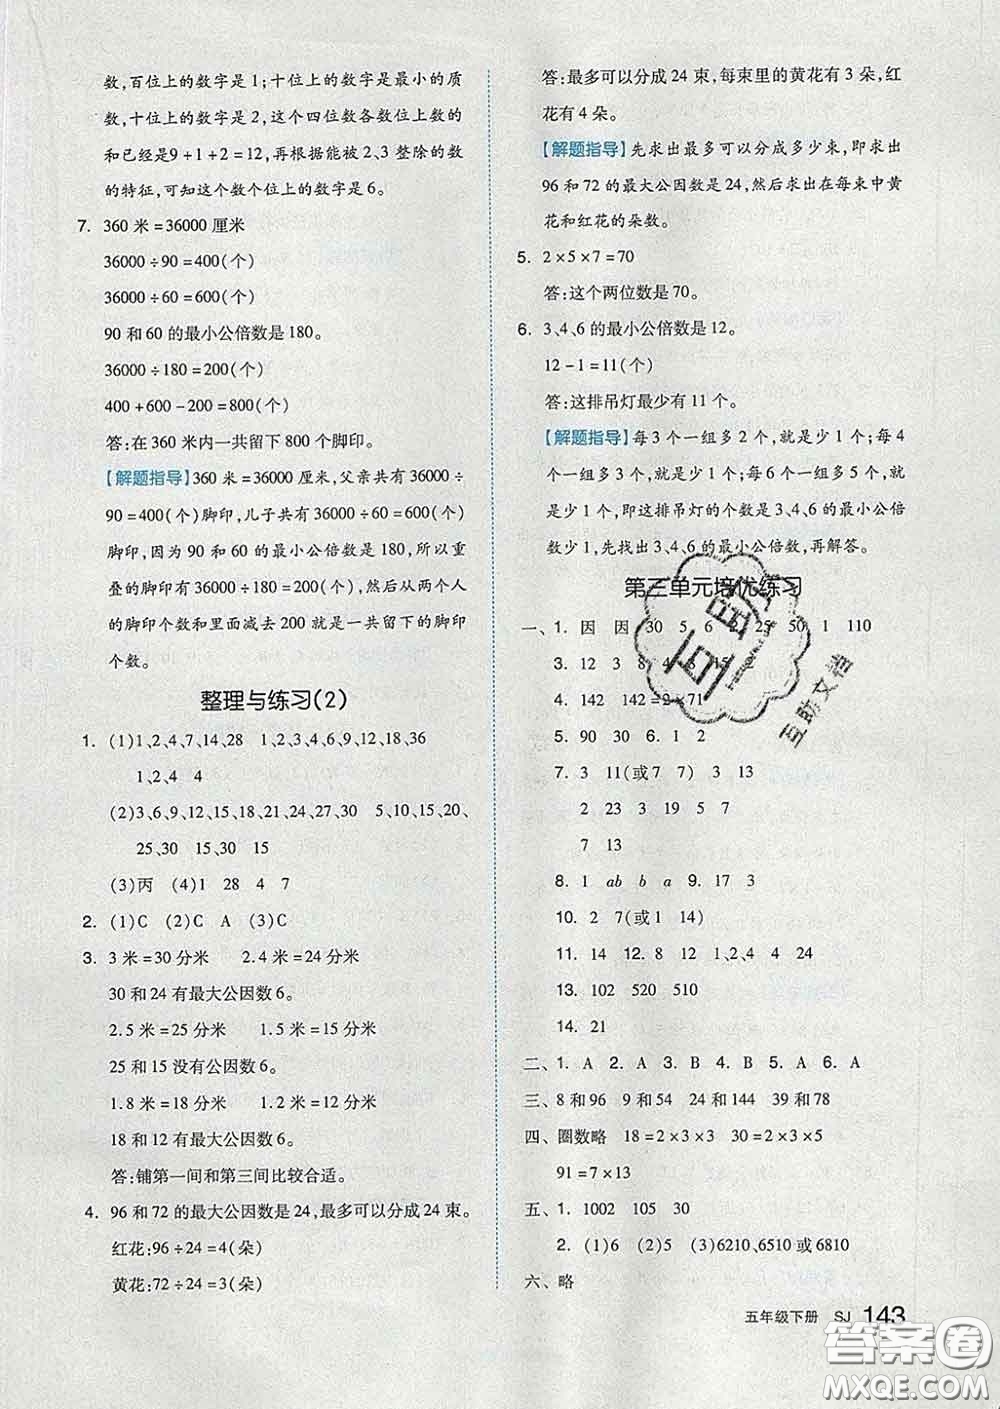 数,百位上的数字是1;十位上的数字是最小的质
数,十位上的数字是2,这个四位数各数位上数的
和已经是9+1+2=12,再根据能被2、3整除的数
的特征,可知这个数个位上的数字是6。
7. 360米=36000厘米
36000÷90=400(个)
36000÷60=600(个)
90和60的最小公倍数是180。
36000÷180=200(个)
400+600-200=800(个)
答:在360米内一共留下800个脚印。
【解题指导】360米=36000厘米,父亲共有36000÷
90=400(个)脚印,儿子共有36000÷60=600(个)
脚印,因为90和60的最小公倍数是180,所以重
叠的脚印有36000÷180=200(个),然后从两个人
的脚印个数和里面减去200就是一共留下的脚印
个数。
整理与练习(2)
1. (1)1、2、4、7、14、28 1、2、3、4、6、9、12、18、36
1、2、4 4
(2)3、6、9、12、15、18、21、24、27、30 5、10、15、20、
25、30 15 30 15
(3)丙 (4)1 28 4 7
2. (1)C (2)C A (3)C
3. 3米=30分米 2.4米=24分米
30和24有最大公因数6。
2.5米=25分米 1.5米=15分米
25和15没有公因数6。
1.8米=18分米 1.2米=12分米
18和12有最大公因数6。
答:铺第一间和第三间比较合适。
4. 96和72的最大公因数是24,最多可以分成24束。
红花:96÷24=4(朵)
黄花:72÷24=3(朵)
答:最多可以分成24束,每束里的黄花有3朵,红
花有4朵。
【解题指导】先求出最多可以分成多少束,即求出
96和72的最大公因数是24,然后求出在每束中黄
花和红花的朵数。
5. 2×5×7=70
答:这个两位数是70。
6. 3、4、6的最小公倍数是12。
12-1=11(个)
答:这排吊灯最少有11个。
【解题指导】每3个一组多2个,就是少1个;每4
个一组多3个,就是少1个;每6个一组多5个,就
是少1个,即这排吊灯的个数是3、4、6的最小公倍
数少1,先找出3、4、6的最小公倍数,再解答。
第三单元培优练习
一、1. 因 因 30 5 6 2 25 50 1 110
3. 12 3 8 4 8 15 2
4. 142 142=2×71
5. 90 30 6. 1 2
7. 3 11(或7 7) 3 13
2 23 3 19 5 17
7 13
8. 1 ab b a 9. 17 3
10. 2 7(或1 14)
11. 14 12. 8 12 1、2、4 4 24
13. 102 520 510
14. 21
二、1. A 2. A 3. B 4. B 5. A 6. A
三、8和96 9和54 24和144 39和78
四、圈数略 18=2×3×3 30=2×3×5
91=7×13
五、1. 1002 105 30
2. (1)6 (2)5 (3)6210、6510或6810
六、略
五年级下册 SJ 143
互助
互助文档
答案圈
MXQE.COM